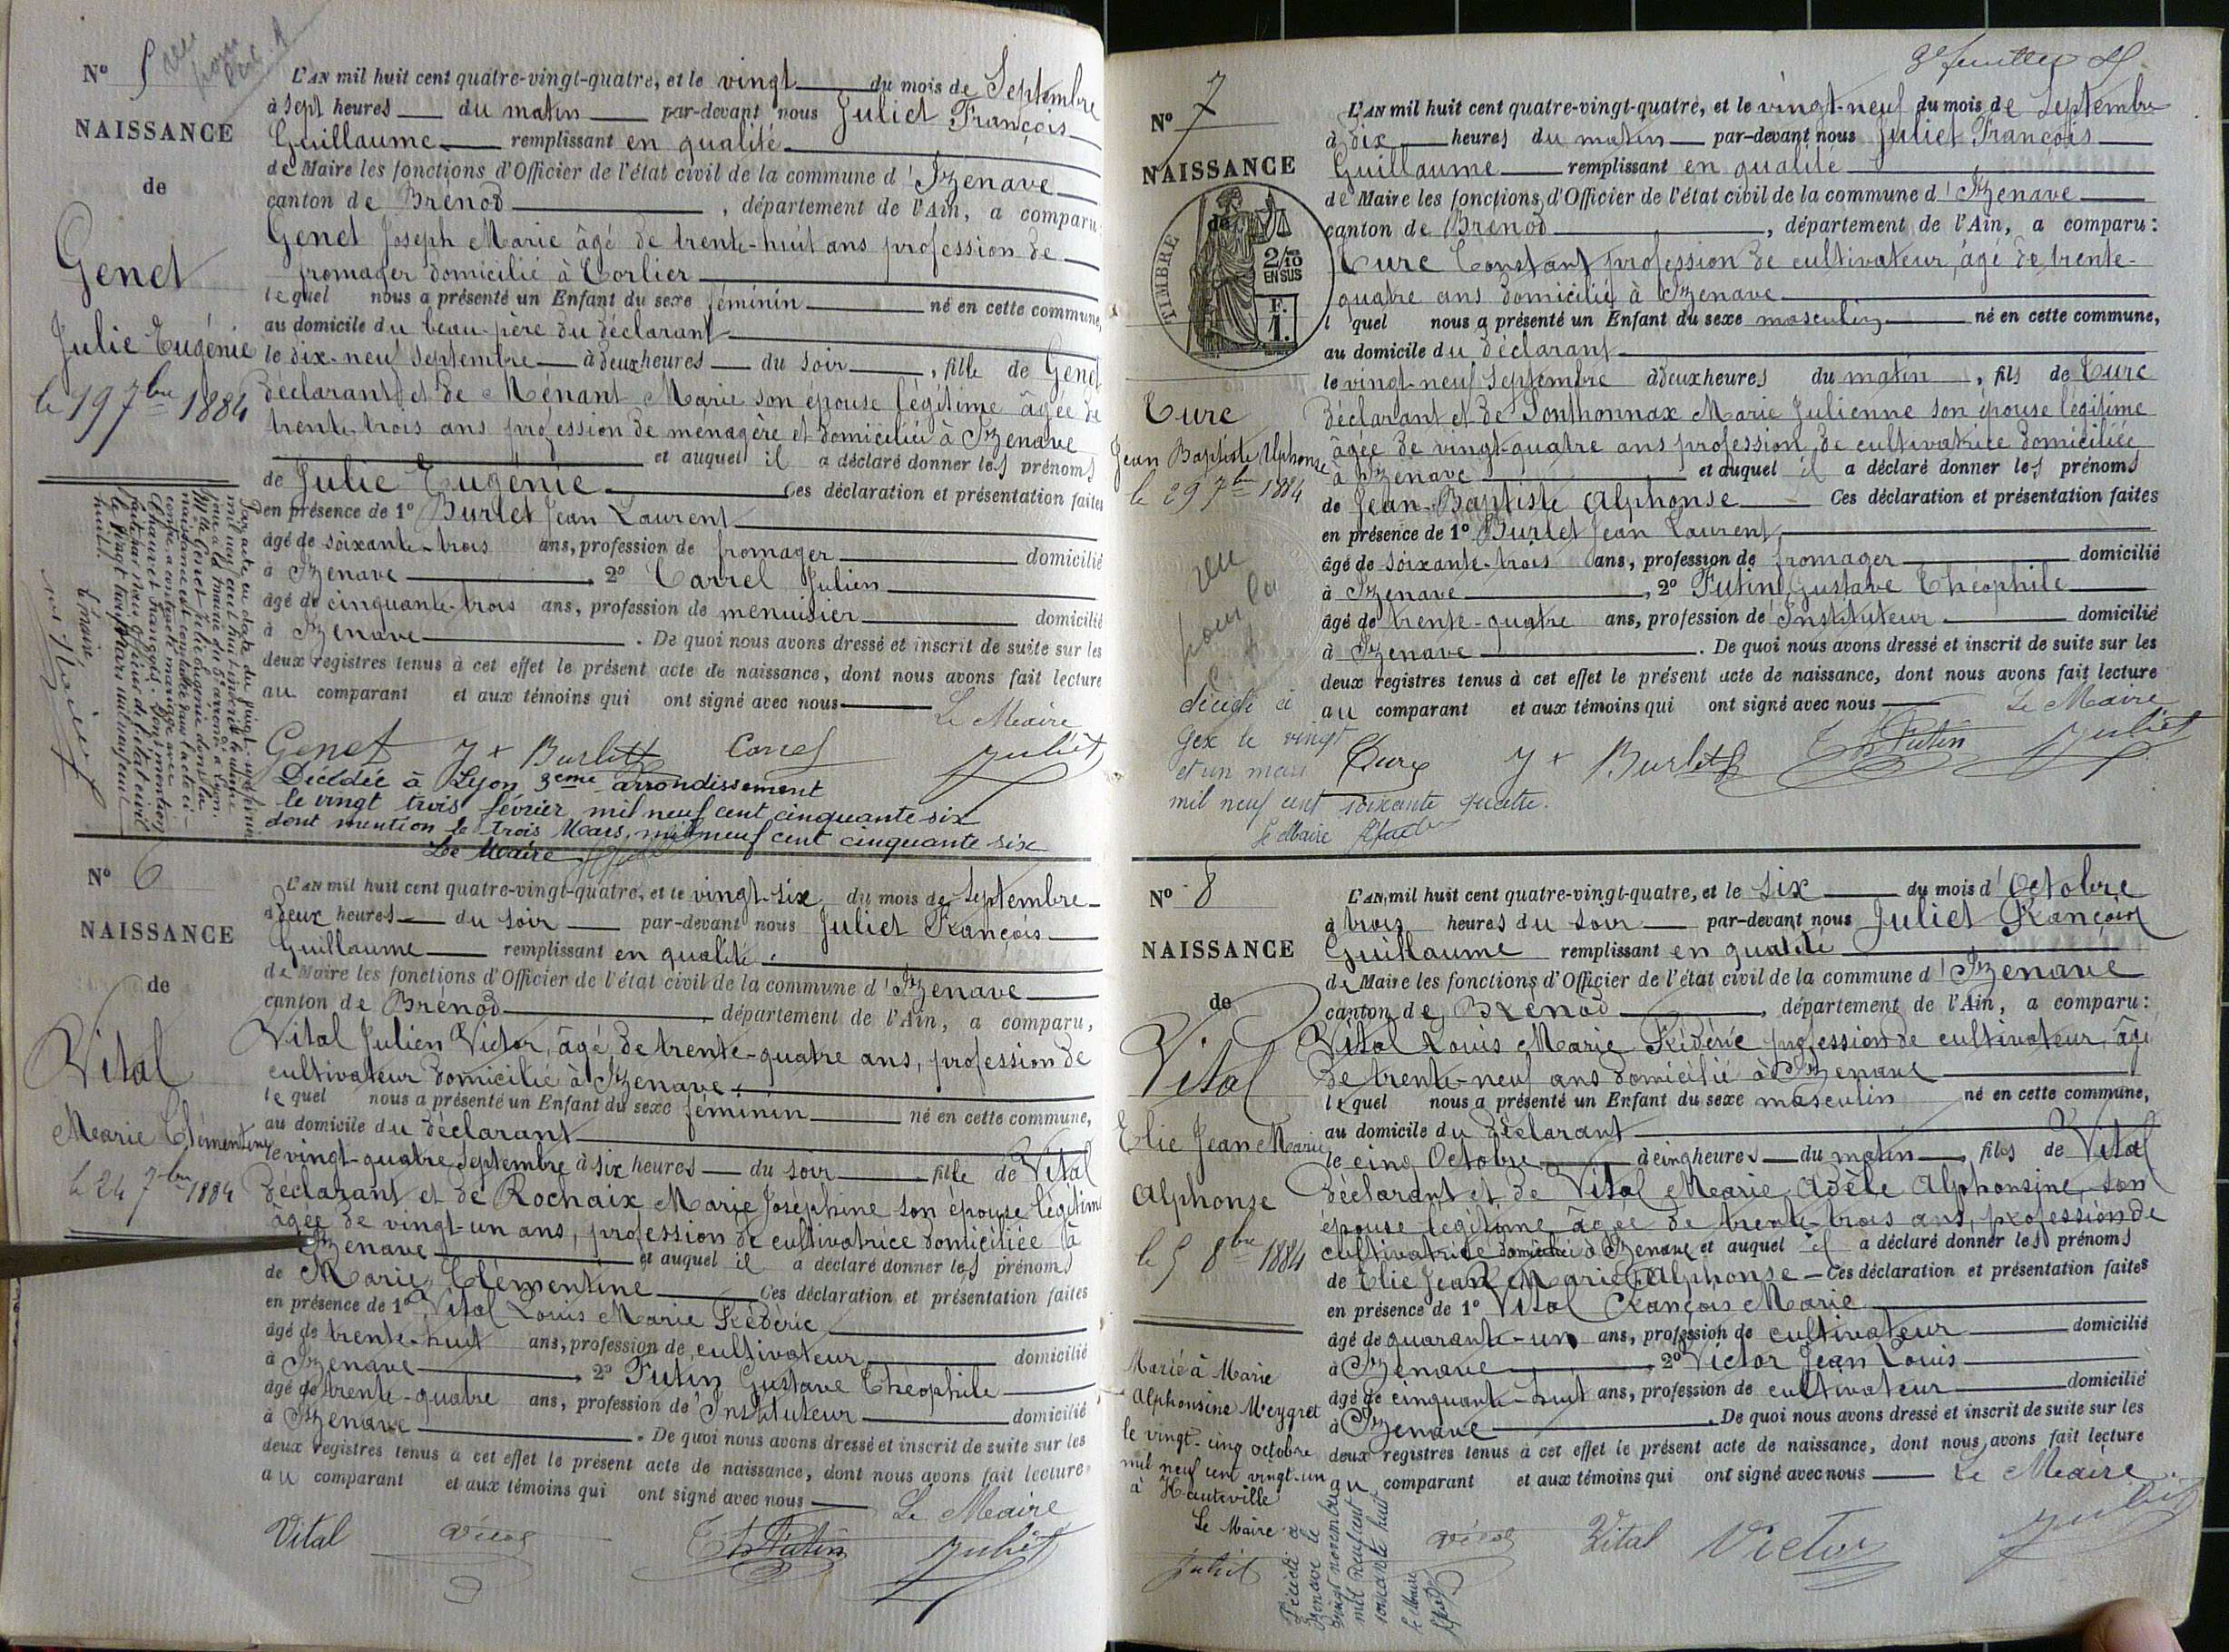 N° 5
NAISSANCE
de
Genet
Julie Eugénie
le 19 7bre 1884
L'AN mil huit cent quatre-vingt-quatre, et le vingt du mois de Septembre
à sept heures du matin par-devant nous Juliet François
Guillaume remplissant en qualité
de Maire les fonctions d'Officier de l'état civil de la commune d'Izenave
canton de Brénod, département de l'Ain, a comparu
Genet Joseph Marie âgé de trente-huit ans profession de
fromager domicilié à Corlier
lequel nous a présenté un Enfant du sexe féminin né en cette commune,
au domicile du beau-père du déclarant
le dix-neuf Septembre à deux heures du soir, fille de Genet
déclarant et de Ménant Marie son épouse légitime âgée de
trente-trois ans profession de ménagère et domiciliée à Izenave
et auquel il a déclaré donner les prénoms
de Julie Eugénie Ces déclaration et présentation faites
en présence de 1° Burlet Jean Laurent
âgé de soixante-trois ans, profession de fromager domicilié
à Izenave, 2° Carrel Julien
âgé de cinquante-trois ans, profession de menuisier domicilié
à Izenave. De quoi nous avons dressé et inscrit de suite sur les
deux registres tenus à cet effet le présent acte de naissance, dont nous avons fait lecture
au comparant et aux témoins qui ont signé avec nous
Le Maire
Genet J + Burlet Carrel Juliet
Décédée à Lyon 3eme arrondissement
le vingt trois février mil neuf cent cinquante six
dont mention le trois Mars, mil neuf cent cinquante six
Le Maire
N° 6
NAISSANCE
de
Vital
Marie Clémentine
le 24 7bre 1884
L'AN mil huit cent quatre-vingt-quatre, et le vingt-six du mois de Septembre
à deux heures du soir par-devant nous Juliet François
Guillaume remplissant en qualité
de Maire les fonctions d'Officier de l'état civil de la commune d'Izenave
canton de Brénod, département de l'Ain, a comparu,
Vital Julien Victor, âgé de trente-quatre ans, profession de
cultivateur domicilié à Izenave
lequel nous a présenté un Enfant du sexe féminin né en cette commune,
au domicile du déclarant
le vingt-quatre Septembre à six heures du soir, fille de Vital
déclarant et de Rochaix Marie Joséphine son épouse légitime
âgée de vingt-un ans, profession de cultivatrice domiciliée à
Izenave et auquel il a déclaré donner les prénoms
de Marie Clémentine Ces déclaration et présentation faites
en présence de 1° Vital Louis Marie Frédéric
âgé de trente-huit ans, profession de cultivateur domicilié
à Izenave, 2° Futin Gustave Théophile
âgé de trente-quatre ans, profession d'Instituteur domicilié
à Izenave. De quoi nous avons dressé et inscrit de suite sur les
deux registres tenus à cet effet le présent acte de naissance, dont nous avons fait lecture
au comparant et aux témoins qui ont signé avec nous
Le Maire
Vital Vital Th Futin Juliet
3e feuillet
N° 7
NAISSANCE
de
TIMBRE
2/10
EN SUS
F.
1.
Ture
Jean Baptiste Alphonse
le 29 7bre 1884
décédé à
Gex le vingt
et un mars
mil neuf cent soixante quatre.
Le Maire
L'AN mil huit cent quatre-vingt-quatre, et le vingt-neuf du mois de Septembre
à dix heures du matin par-devant nous Juliet François
Guillaume remplissant en qualité
de Maire les fonctions d'Officier de l'état civil de la commune d'Izenave
canton de Brénod, département de l'Ain, a comparu:
Ture Constant profession de cultivateur, âgé de trente-
quatre ans domicilié à Izenave
l quel nous a présenté un Enfant du sexe masculin né en cette commune,
au domicile du déclarant
le vingt-neuf Septembre à deux heures du matin, fils de Ture
déclarant et de Sonthonnax Marie Julienne son épouse légitime
âgée de vingt-quatre ans profession de cultivatrice domiciliée
à Izenave et auquel il a déclaré donner les prénoms
de Jean-Baptiste Alphonse Ces déclaration et présentation faites
en présence de 1° Burlet Jean Laurent
âgé de soixante-trois ans, profession de fromager domicilié
à Izenave, 2° Futin Gustave Théophile
âgé de trente-quatre ans, profession d'Instituteur domicilié
à Izenave. De quoi nous avons dressé et inscrit de suite sur les
deux registres tenus à cet effet le présent acte de naissance, dont nous avons fait lecture
au comparant et aux témoins qui ont signé avec nous
Le Maire
Ture J + Burlet Th Futin Juliet
N° 8
NAISSANCE
de
Vital
Elie Jean Marie
Alphonse
le 5 8bre 1884
Marié à Marie
Alphonsine Meygret
le vingt-cinq octobre
mil neuf cent vingt-un
à Hauteville
Le Maire
Juliet
Décédé à
Izenave le
vingt novembre
mil neuf cent
soixante huit
Le Maire
L'AN mil huit cent quatre-vingt-quatre, et le six du mois d'Octobre
à trois heures du soir par-devant nous Juliet François
Guillaume remplissant en qualité
de Maire les fonctions d'Officier de l'état civil de la commune d'Izenave
canton de Brénod, département de l'Ain, a comparu:
Vital Louis Marie Frédéric profession de cultivateur, âgé
de trente-neuf ans domicilié à Izenave
lequel nous a présenté un Enfant du sexe masculin né en cette commune,
au domicile du déclarant
le cinq Octobre à cinq heures du matin, fils de Vital
déclarant et de Vital Marie Adèle Alphonsine, son
épouse légitime âgée de trente-trois ans, profession de
cultivatrice domiciliée à Izenave et auquel il a déclaré donner les prénoms
de Elie Jean Marie Alphonse Ces déclaration et présentation faites
en présence de 1° Vital François Marie
âgé de quarante-un ans, profession de cultivateur domicilié
à Izenave, 2° Victor Jean Louis
âgé de cinquante-huit ans, profession de cultivateur domicilié
à Izenave. De quoi nous avons dressé et inscrit de suite sur les
deux registres tenus à cet effet le présent acte de naissance, dont nous avons fait lecture
au comparant et aux témoins qui ont signé avec nous
Le Maire
Vital Vital Victor Juliet